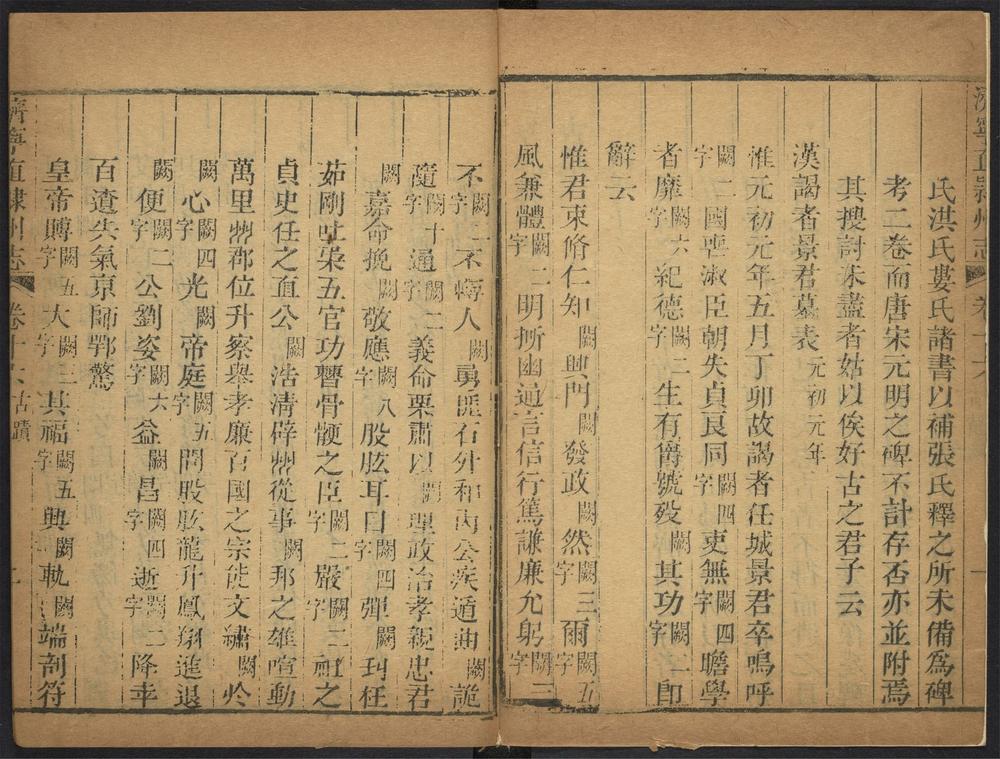 氏洪氏婁氏諸書以補張氏釋之所未備爲碑
考二卷而唐宋元明之碑不計存否亦並附焉
其搜討未盡者姑以俟好古之君子云
漢謁者景君墓表元初元年
惟元初元年五月丁卯故謁者任城景君卒嗚呼
闕二字國喪淑臣朝失貞良同闕四字吏無闕四字瞻學
者靡闕六字紀德闕二字生有爵號歿闕其功闕一字卽
辭云
惟君束脩仁知闕興門闕發政闕然闕三字爾闕五字
風兼體闕二字明斷幽通言信行篤謙廉允躬闕三字
濟寧直隸州志
不闕二字不侮人闕勇匪石外和內公疾遁曲闕詭
隨闕十字通闕二字義命栗肅以闕理政治孝親忠君
闕嘉命挽闕敬應闕八字股肱耳目闕四字彈闕刋枉
茹剛吐柔五官功曹骨骾之臣闕二字嚴闕二字祖之
貞史任之直公闕浩清辟州從事闕邦之雄喧動
萬里州郡位升察舉孝廉百國之宗能文繡闕於
闕心闕四字光闕帝庭闕五字問股肱龍升鳳翔進退
闕便闕二字公劉姿闕六字益闕昌闕四字逝闕二字降幸
百遼失氣京師鄂驚
皇帝賻闕五字大闕三字其福闕五字興闕軌闕端剖符
濟寧直隸州志 卷十六 古蹟